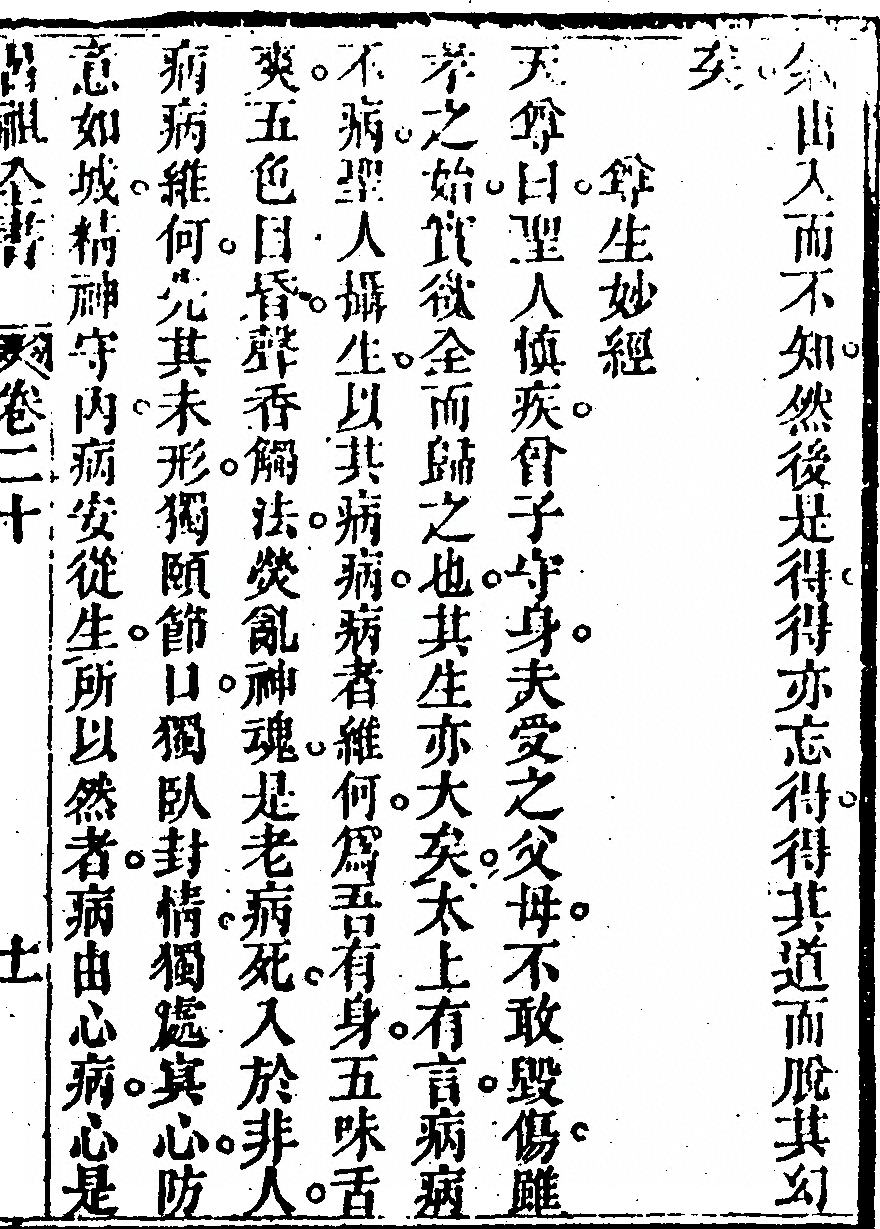 出入而不知然後是得得亦忘得得其道而脫其幻
矣
尊生妙經
天尊曰聖人慎疾曾子守身夫受之父母不敢毀傷雖
孝之始實欲全而歸之也其生亦大矣太上有言病病
不病聖人攝生以其病病病者維何爲吾有身五味舌
爽五色目昏聲香觸法熒亂神魂是老病死入於非人
病病維何先其未形獨頤節口獨臥封情獨處寡心防
意如城精神守內病安從生所以然者病由心病心是
呂祖全書 卷二十 十一